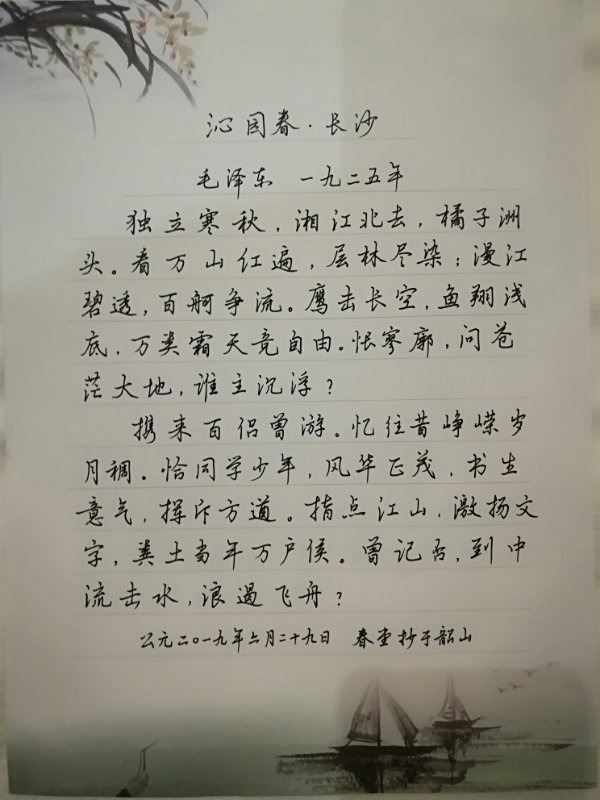 沁园春·长沙
毛泽东 一九二五年
独立寒秋，湘江北去，橘子洲
头。看万山红遍，层林尽染；漫江
碧透，百舸争流。鹰击长空，鱼翔浅
底，万类霜天竞自由。怅寥廓，问苍
茫大地，谁主沉浮？
携来百侣曾游。忆往昔峥嵘岁
月稠。恰同学少年，风华正茂，书生
意气，挥斥方遒。指点江山，激扬文
字，粪土当年万户侯。曾记否，到中
流击水，浪遏飞舟？
公元二〇一九年六月二十九日 春堂抄于韶山